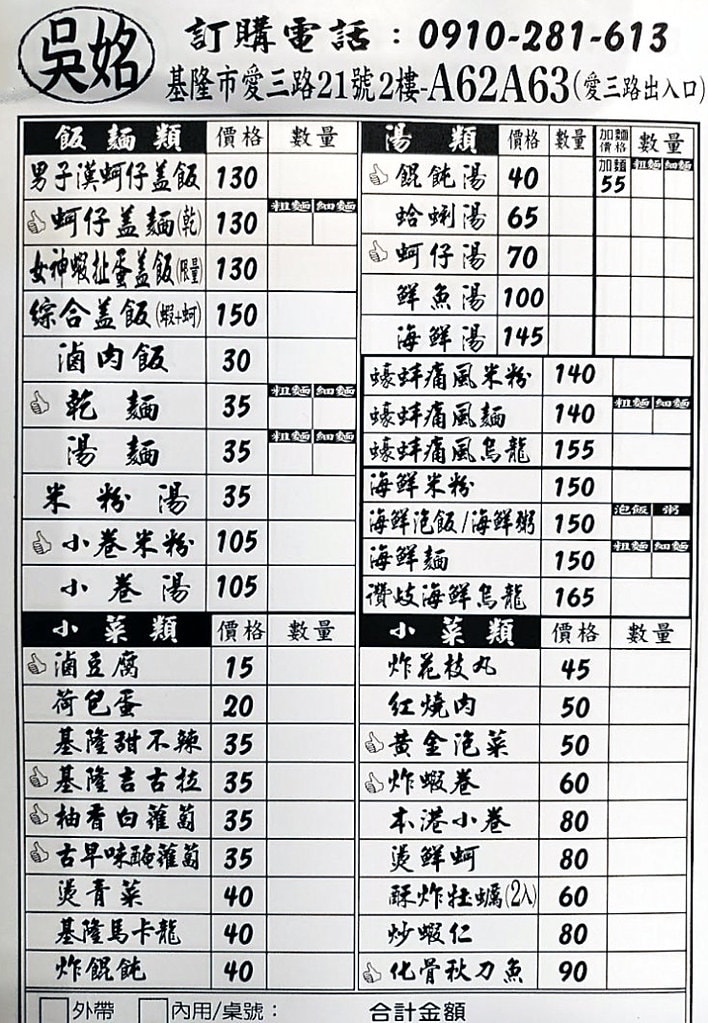 吳姳
訂購電話：0910-281-613
基隆市愛三路21號2樓-A62A63(愛三路出入口)
飯麵類 價格 數量
男子漢蚵仔盖飯 130
蚵仔盖麵(乾) 130 粗麵 細麵
女神蝦扯蛋盖飯(限量) 130
綜合盖飯(蝦+蚵) 150
滷肉飯 30
乾麵 35 粗麵 細麵
湯麵 35 粗麵 細麵
米粉湯 35
小卷米粉 105
小卷湯 105
湯類 價格 數量 加麵價格 數量
餛飩湯 40 加麵 55 粗麵 細麵
蛤蜊湯 65
蚵仔湯 70
鮮魚湯 100
海鮮湯 145
蠔蚌痛風米粉 140
蠔蚌痛風麵 140 粗麵 細麵
蠔蚌痛風烏龍 155
海鮮米粉 150
海鮮泡飯/海鮮粥 150 泡飯 粥
海鮮麵 150 粗麵 細麵
讚岐海鮮烏龍 165
小菜類 價格 數量
滷豆腐 15
荷包蛋 20
基隆甜不辣 35
基隆吉古拉 35
柚香白蘿蔔 35
古早味醃蘿蔔 35
燙青菜 40
基隆馬卡龍 40
炸餛飩 40
小菜類 價格 數量
炸花枝丸 45
紅燒肉 50
黃金泡菜 50
炸蝦卷 60
本港小卷 80
燙鮮蚵 80
酥炸牡蠣(2入) 60
炒蝦仁 80
化骨秋刀魚 90
外帶 內用/桌號： 合計金額